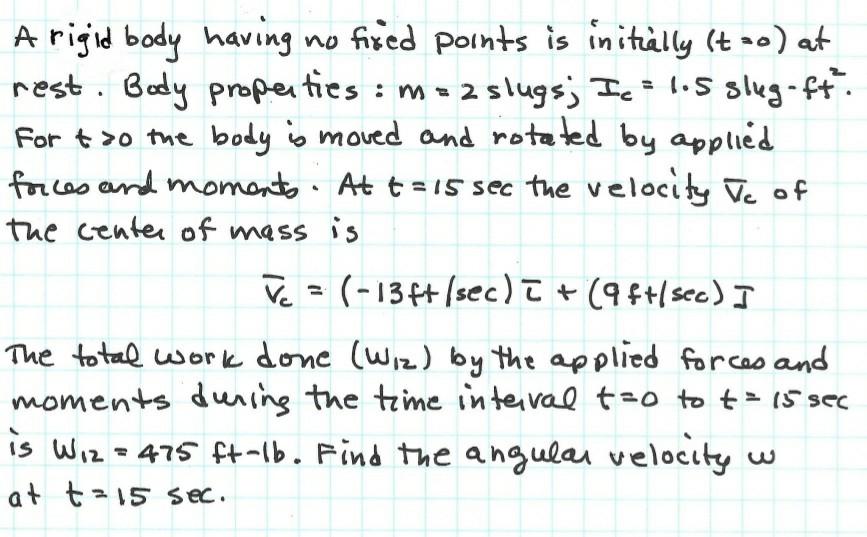 A rigid body having no fixed points is initially (t=0) at
rest. Body properties: m = 2 slugs; I_c = 1.5 slug-ft².
For t>0 the body is moved and rotated by applied
forces and moments. At t=15 sec the velocity V̅c of
the center of mass is
V̅c = (-13 ft/sec) i̅ + (9 ft/sec) J̅
The total work done (W₁₂) by the applied forces and
moments during the time interval t=0 to t=15 sec
is W₁₂ = 475 ft-lb. Find the angular velocity ω
at t=15 sec.